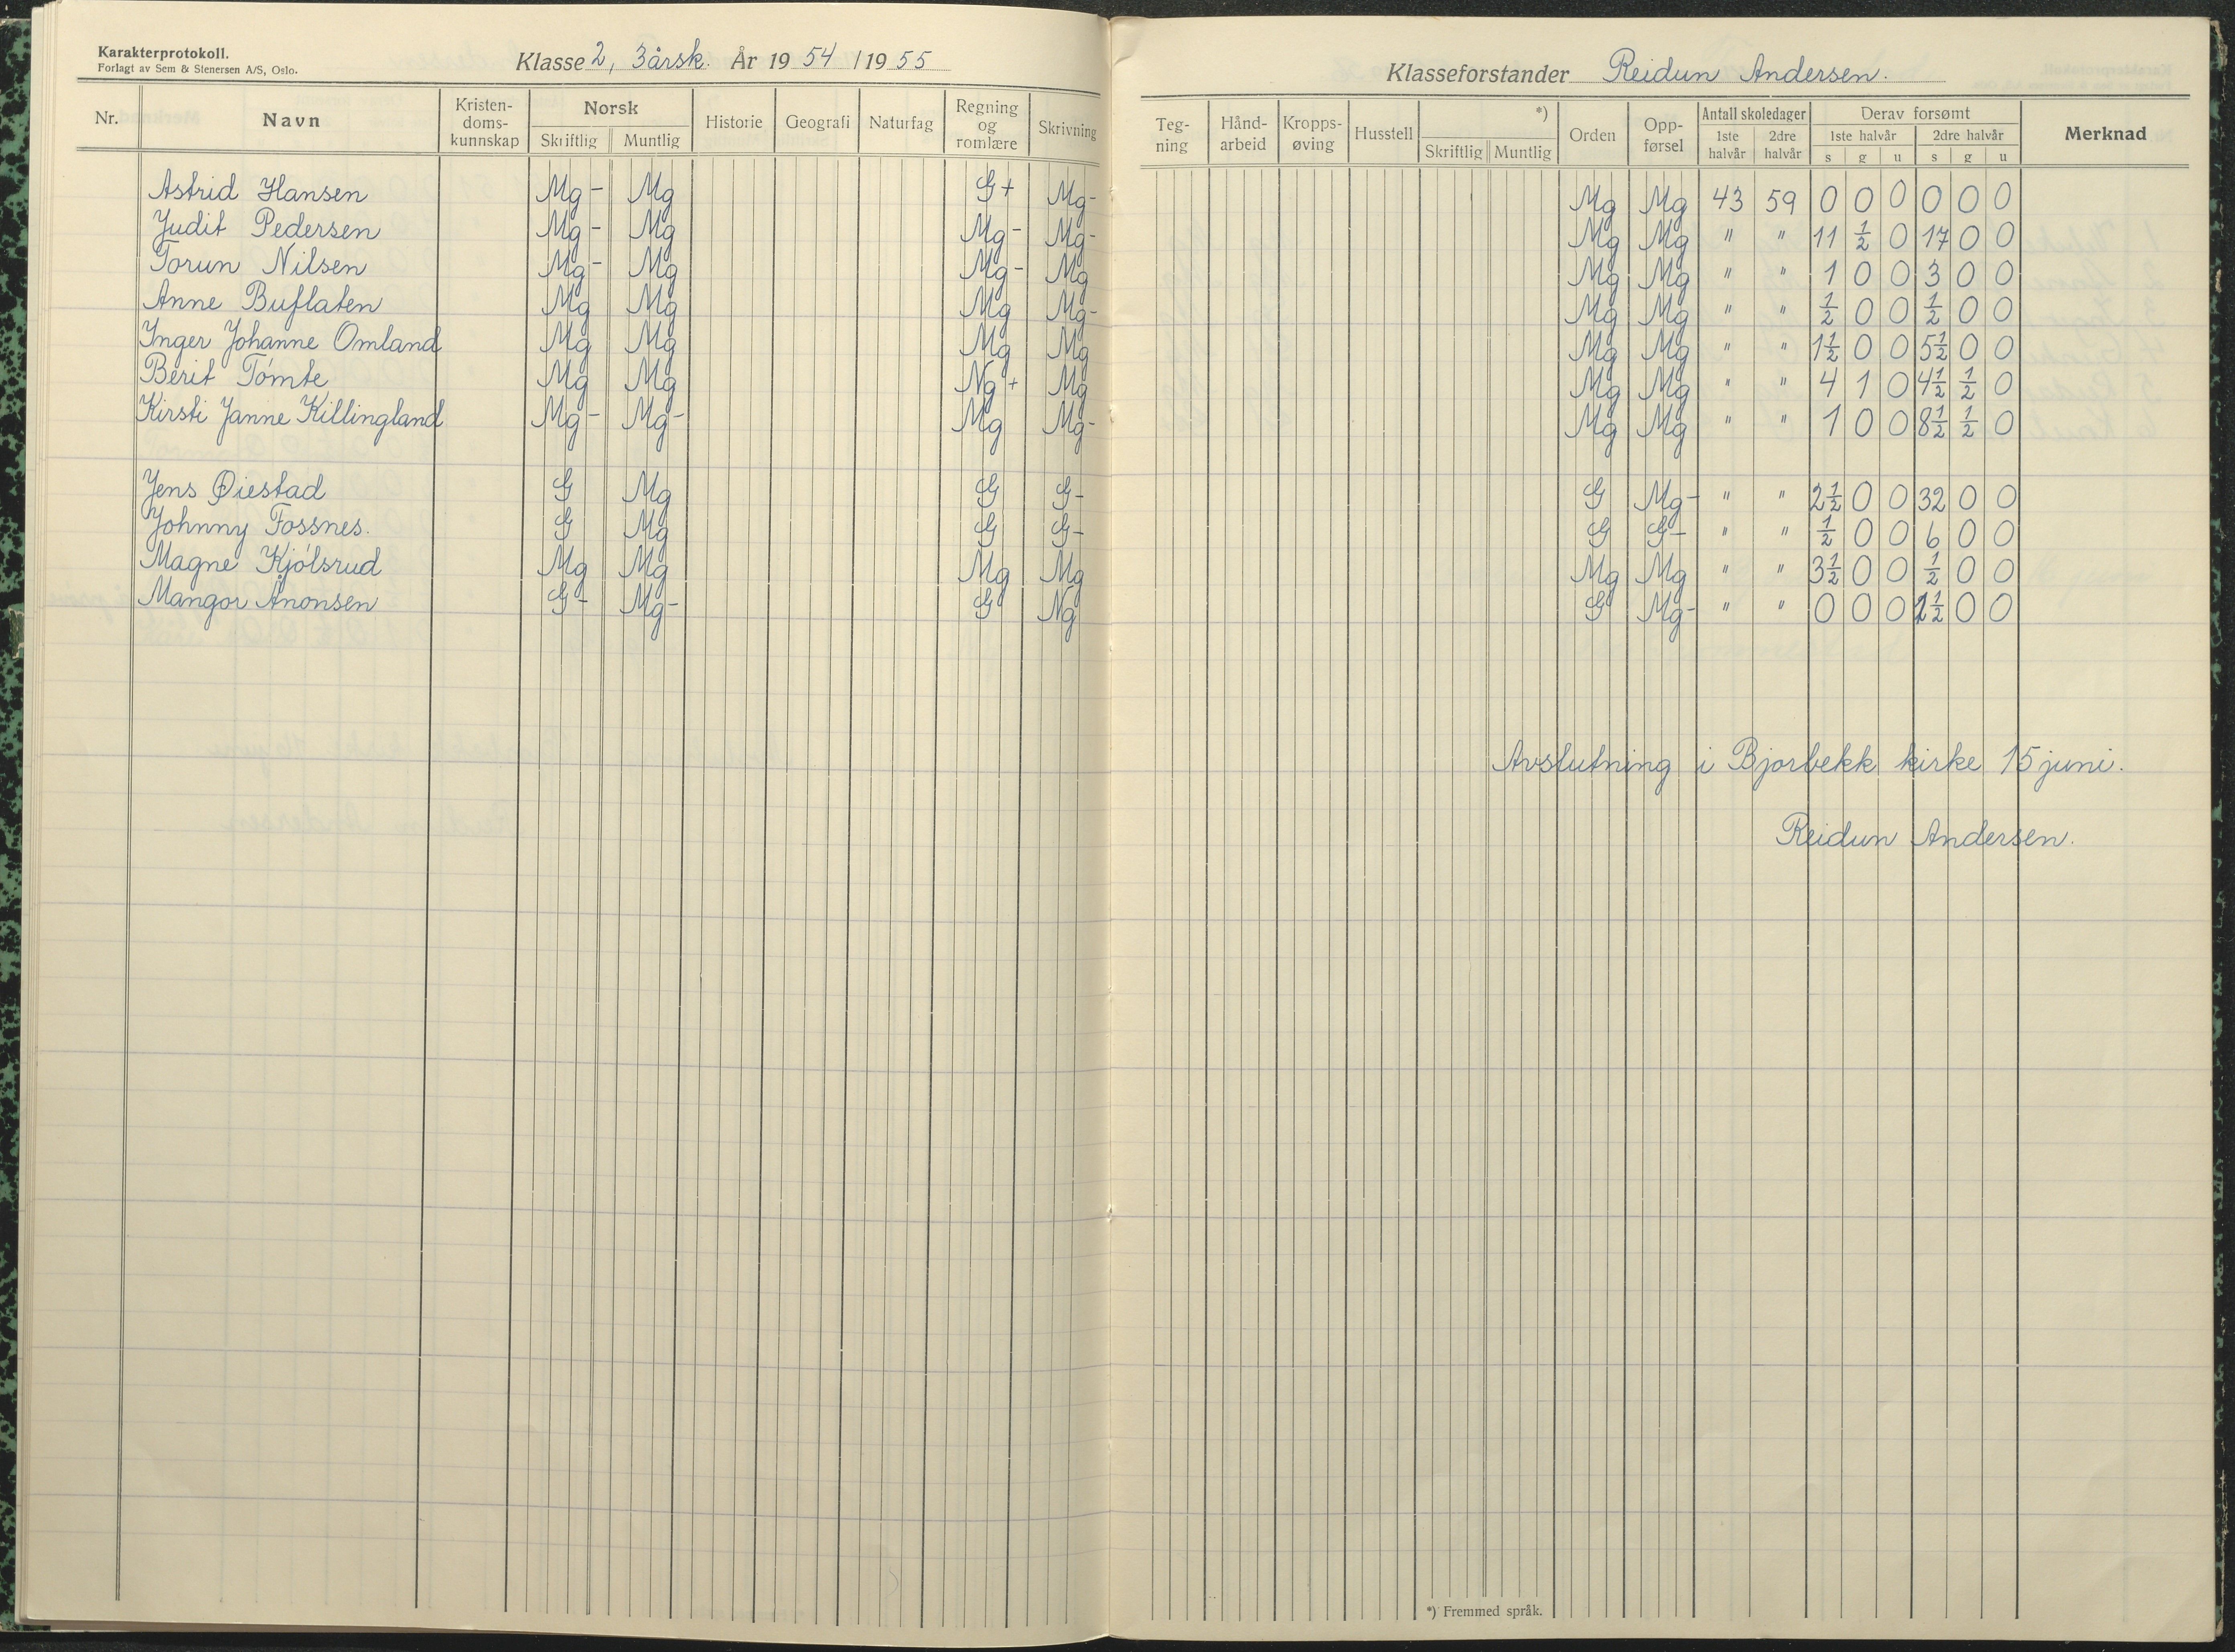 Karakterprotokoll.
Forlagt av Sem & Stenersen A/S, Oslo.
Klasse 2, 3årsk. År 1954 / 1955
Nr. Navn Kristen-doms-kunnskap Norsk Skriftlig Muntlig Historie Geografi Naturfag Regning og romlære Skrivning
Astrid Hansen Mg- Mg G+ Mg-
Judit Pedersen Mg- Mg Mg- Mg-
Torun Nilsen Mg- Mg Mg- Mg
Anne Buflaten Mg Mg Mg Mg-
Inger Johanne Omland Mg Mg Mg Mg
Berit Tómte Mg Mg Ng+ Mg
Kirsti Janne Killingland Mg- Mg- Mg Mg-
Jens Øiestad G Mg G G-
Johnny Fossnes. G Mg G G-
Magne Kjólsrud Mg Mg Mg Mg
Mangor Ånonsen G- Mg- G Ng
Klasseforstander Reidun Andersen.
Teg-ning Hånd-arbeid Kropps-øving Husstell *) Skriftlig Muntlig Orden Opp-førsel Antall skoledager 1ste halvår 2dre halvår Derav forsømt 1ste halvår s g u 2dre halvår s g u Merknad
Mg Mg 43 59 0 0 0 0 0 0
Mg Mg " " 11 1/2 0 17 0 0
Mg Mg " " 1 0 0 3 0 0
Mg Mg " " 1/2 0 0 1/2 0 0
Mg Mg " " 1 1/2 0 0 5 1/2 0 0
Mg Mg " " 4 1 0 4 1/2 1/2 0
Mg Mg " " 1 0 0 8 1/2 1/2 0
G Mg- " " 2 1/2 0 0 32 0 0
G G- " " 1/2 0 0 6 0 0
Mg Mg " " 3 1/2 0 0 1/2 0 0
G Mg- " " 0 0 0 1/2 0 0
Avslutning i Bjorbekk kirke 15 juni.
Reidun Andersen.
*) Fremmed språk.